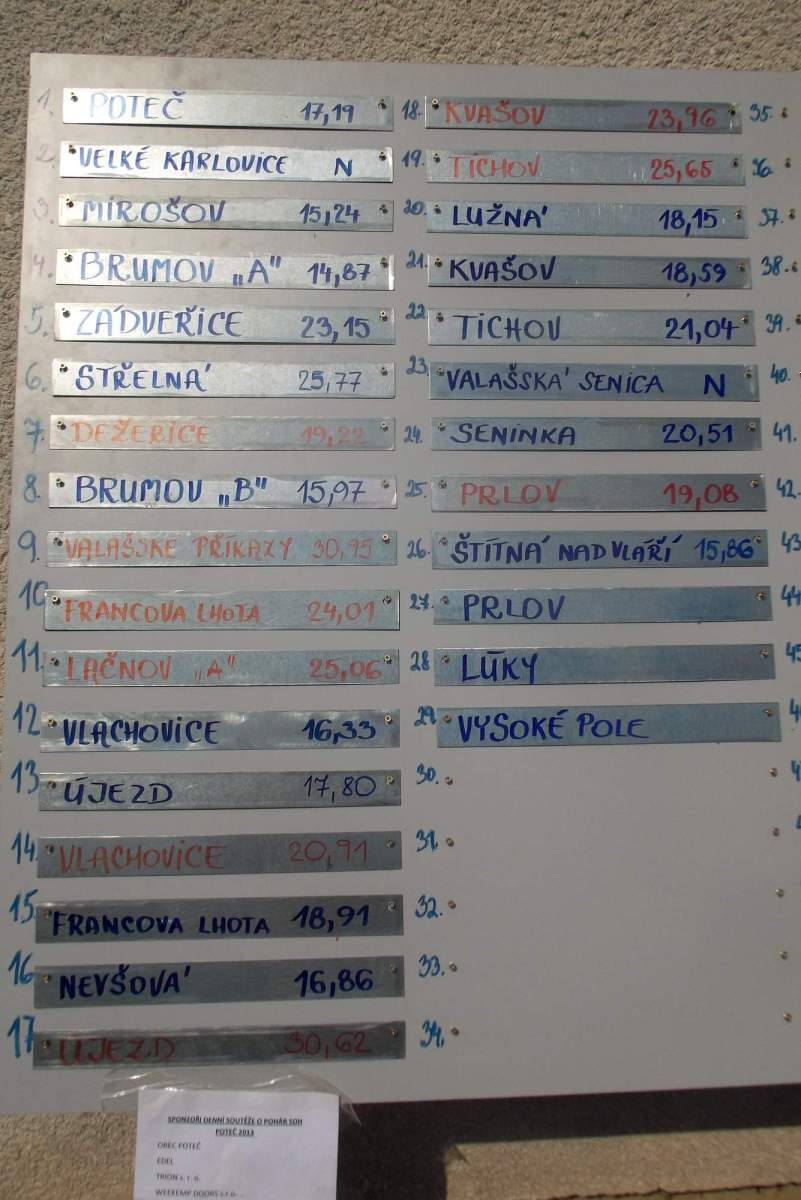 1. POTEČ 17,19
2. VELKÉ KARLOVICE N
3. MIROŠOV 15,24
4. BRUMOV „A" 14,87
5. ZÁDVEŘICE 23,15
6. STŘELNÁ 25,77
7. DEŽERICE 19,22
8. BRUMOV „B" 15,97
9. VALAŠSKE PŘÍKAZY 30,95
10 FRANCOVA LHOTA 24,01
11. LAČNOV „A" 25,06
12 VLACHOVICE 16,33
13 ÚJEZD 17,80
14. VLACHOVICE 20,91
15 FRANCOVA LHOTA 18,91
16 NEVŠOVÁ 16,86
17 ÚJEZD 30,62
18. KVAŠOV 23,96
19. TICHOV 25,65
20. LUŽNÁ 18,15
21. KVAŠOV 18,59
22 TICHOV 21,04
23 VALAŠSKÁ SENICA N
24. SENINKA 20,51
25. PRLOV 19,08
26. ŠTÍTNÁ NAD VLÁŘÍ 15,86
27. PRLOV
28 LÚKY
29. VYSOKÉ POLE
30.
31.
32.
33.
34.
35.
36.
37.
38.
39.
40.
41.
42.
43
44
45
SPONZOŘI DENNÍ SOUTĚŽE O POHÁR SDH
POTEČ 2013
OBEC POTEČ
EDEL
TRION s. r. o.
WEEKEMP DOORS s.r.o.